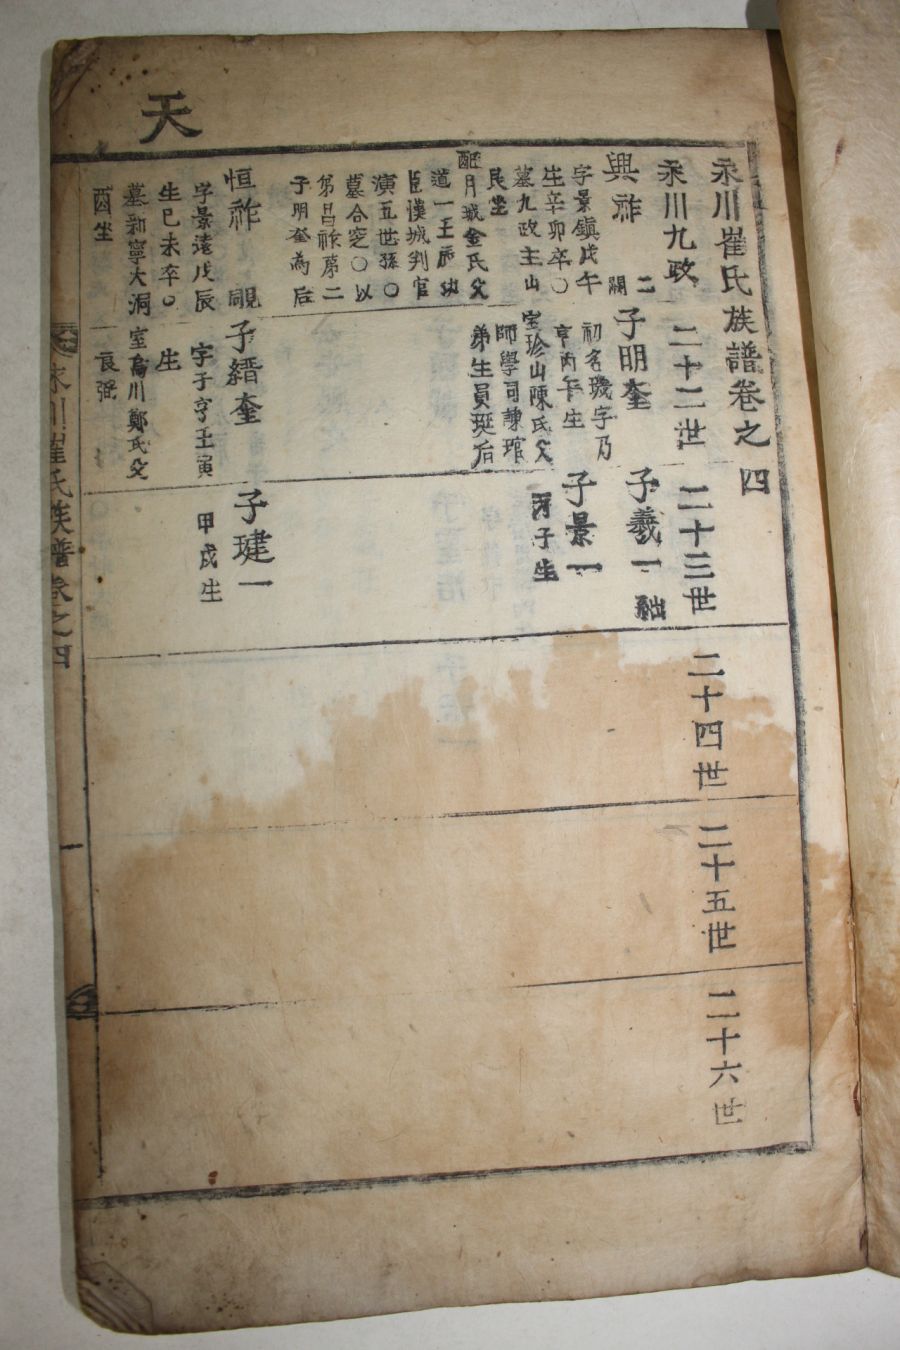 天
永川崔氏族譜卷之四
永川九政
二十二世
二十三世
二十四世
二十五世
二十六世
興祚
二
字景鎭戊午
生辛卯卒○
墓九政主山
艮坐
配月城金氏父
道一王
臣漢城判官
演五世孫○
墓合窆○以
第昌祚第二
子明奎為后
子明奎
初名璣字乃
亨丙午生
室珍山陳氏父
師學司諫琯
弟生員珽后
子羲一
子景一
丙子生
恒祚
字景遠戊辰
生己未卒○
墓新寧大洞
酉坐
子縉奎
字子亨壬寅
生
室烏川鄭氏父
良弼
子建一
甲戌生
永川崔氏族譜卷之四
一